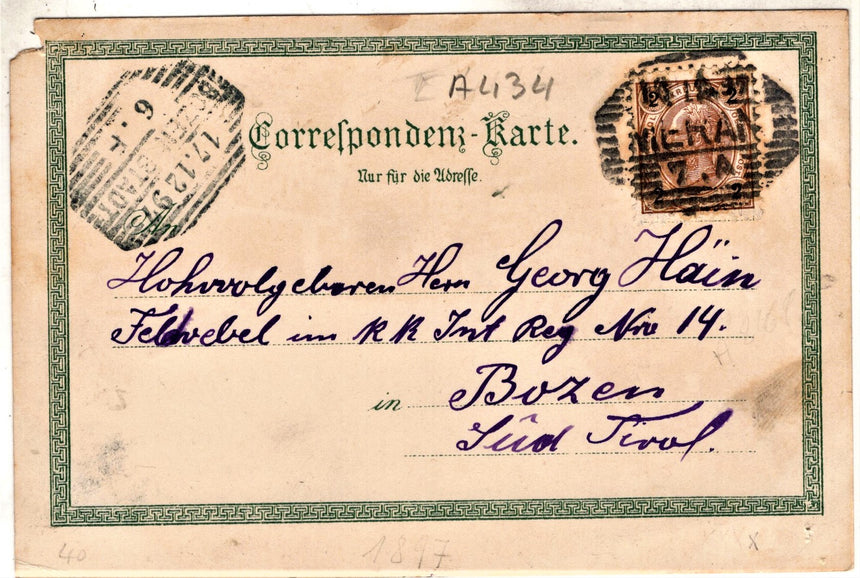 EA434
Correspondenz-Karte.
Nur für die Adresse.
17.12.97
6.F
STADT
MERAN
7.A
2
2
2
Hohwolgeburen Herrn Georg Haïn
Feldwebel im KK Inf Reg Nro 14.
in Bozen
Süd Tirol.
40
1897
x